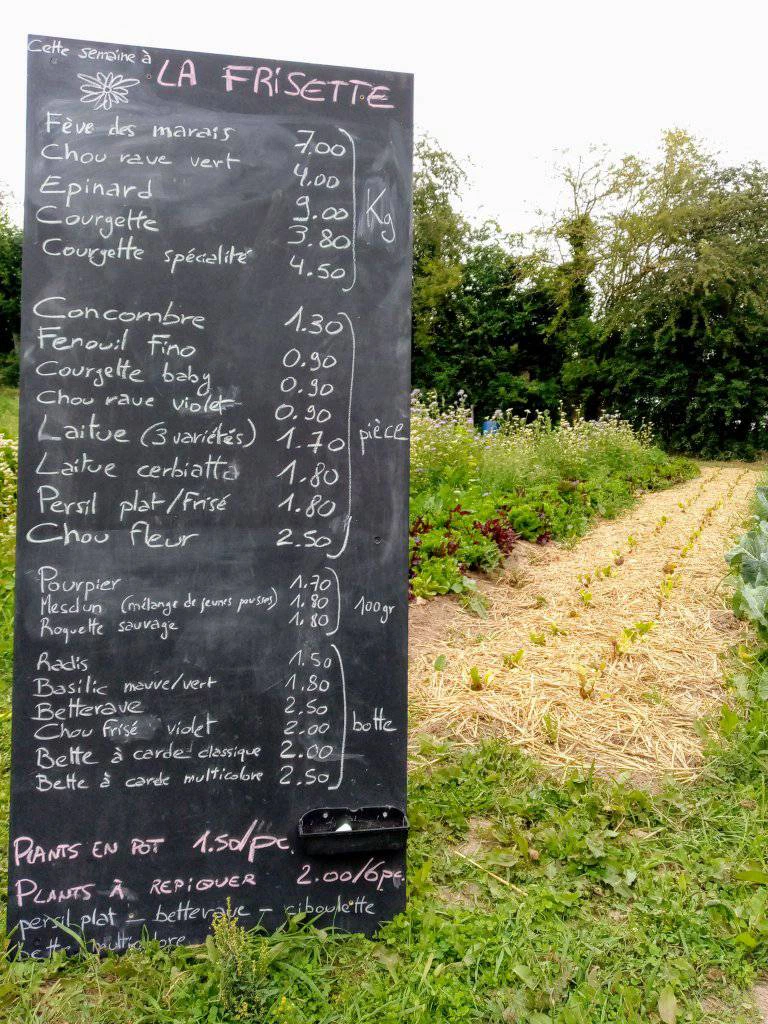 Cette semaine à LA FRISETTE
Fève des marais 7.00
Chou rave vert 4.00
Epinard 9.00
Courgette 3.80
Courgette spécialité 4.50
Kg
Concombre 1.30
Fenouil Fino 0.90
Courgette baby 0.90
Chou rave violet 0.90
Laitue (3 variétés) 1.70
Laitue cerbiatta 1.80
Persil plat/Frisé 1.80
Chou fleur 2.50
pièce
Pourpier 1.70
Mesclun (mélange de jeunes pousses) 1.80
Roquette sauvage 1.80
100gr
Radis 1.50
Basilic mauve/vert 1.80
Betterave 2.50
Chou frisé violet 2.00
Bette à carde classique 2.00
Bette à carde multicolore 2.50
botte
PLANTS EN POT 1.50/pc.
PLANTS À REPIQUER 2.00/6pc.
persil plat - betterave - ciboulette
bette multicolore